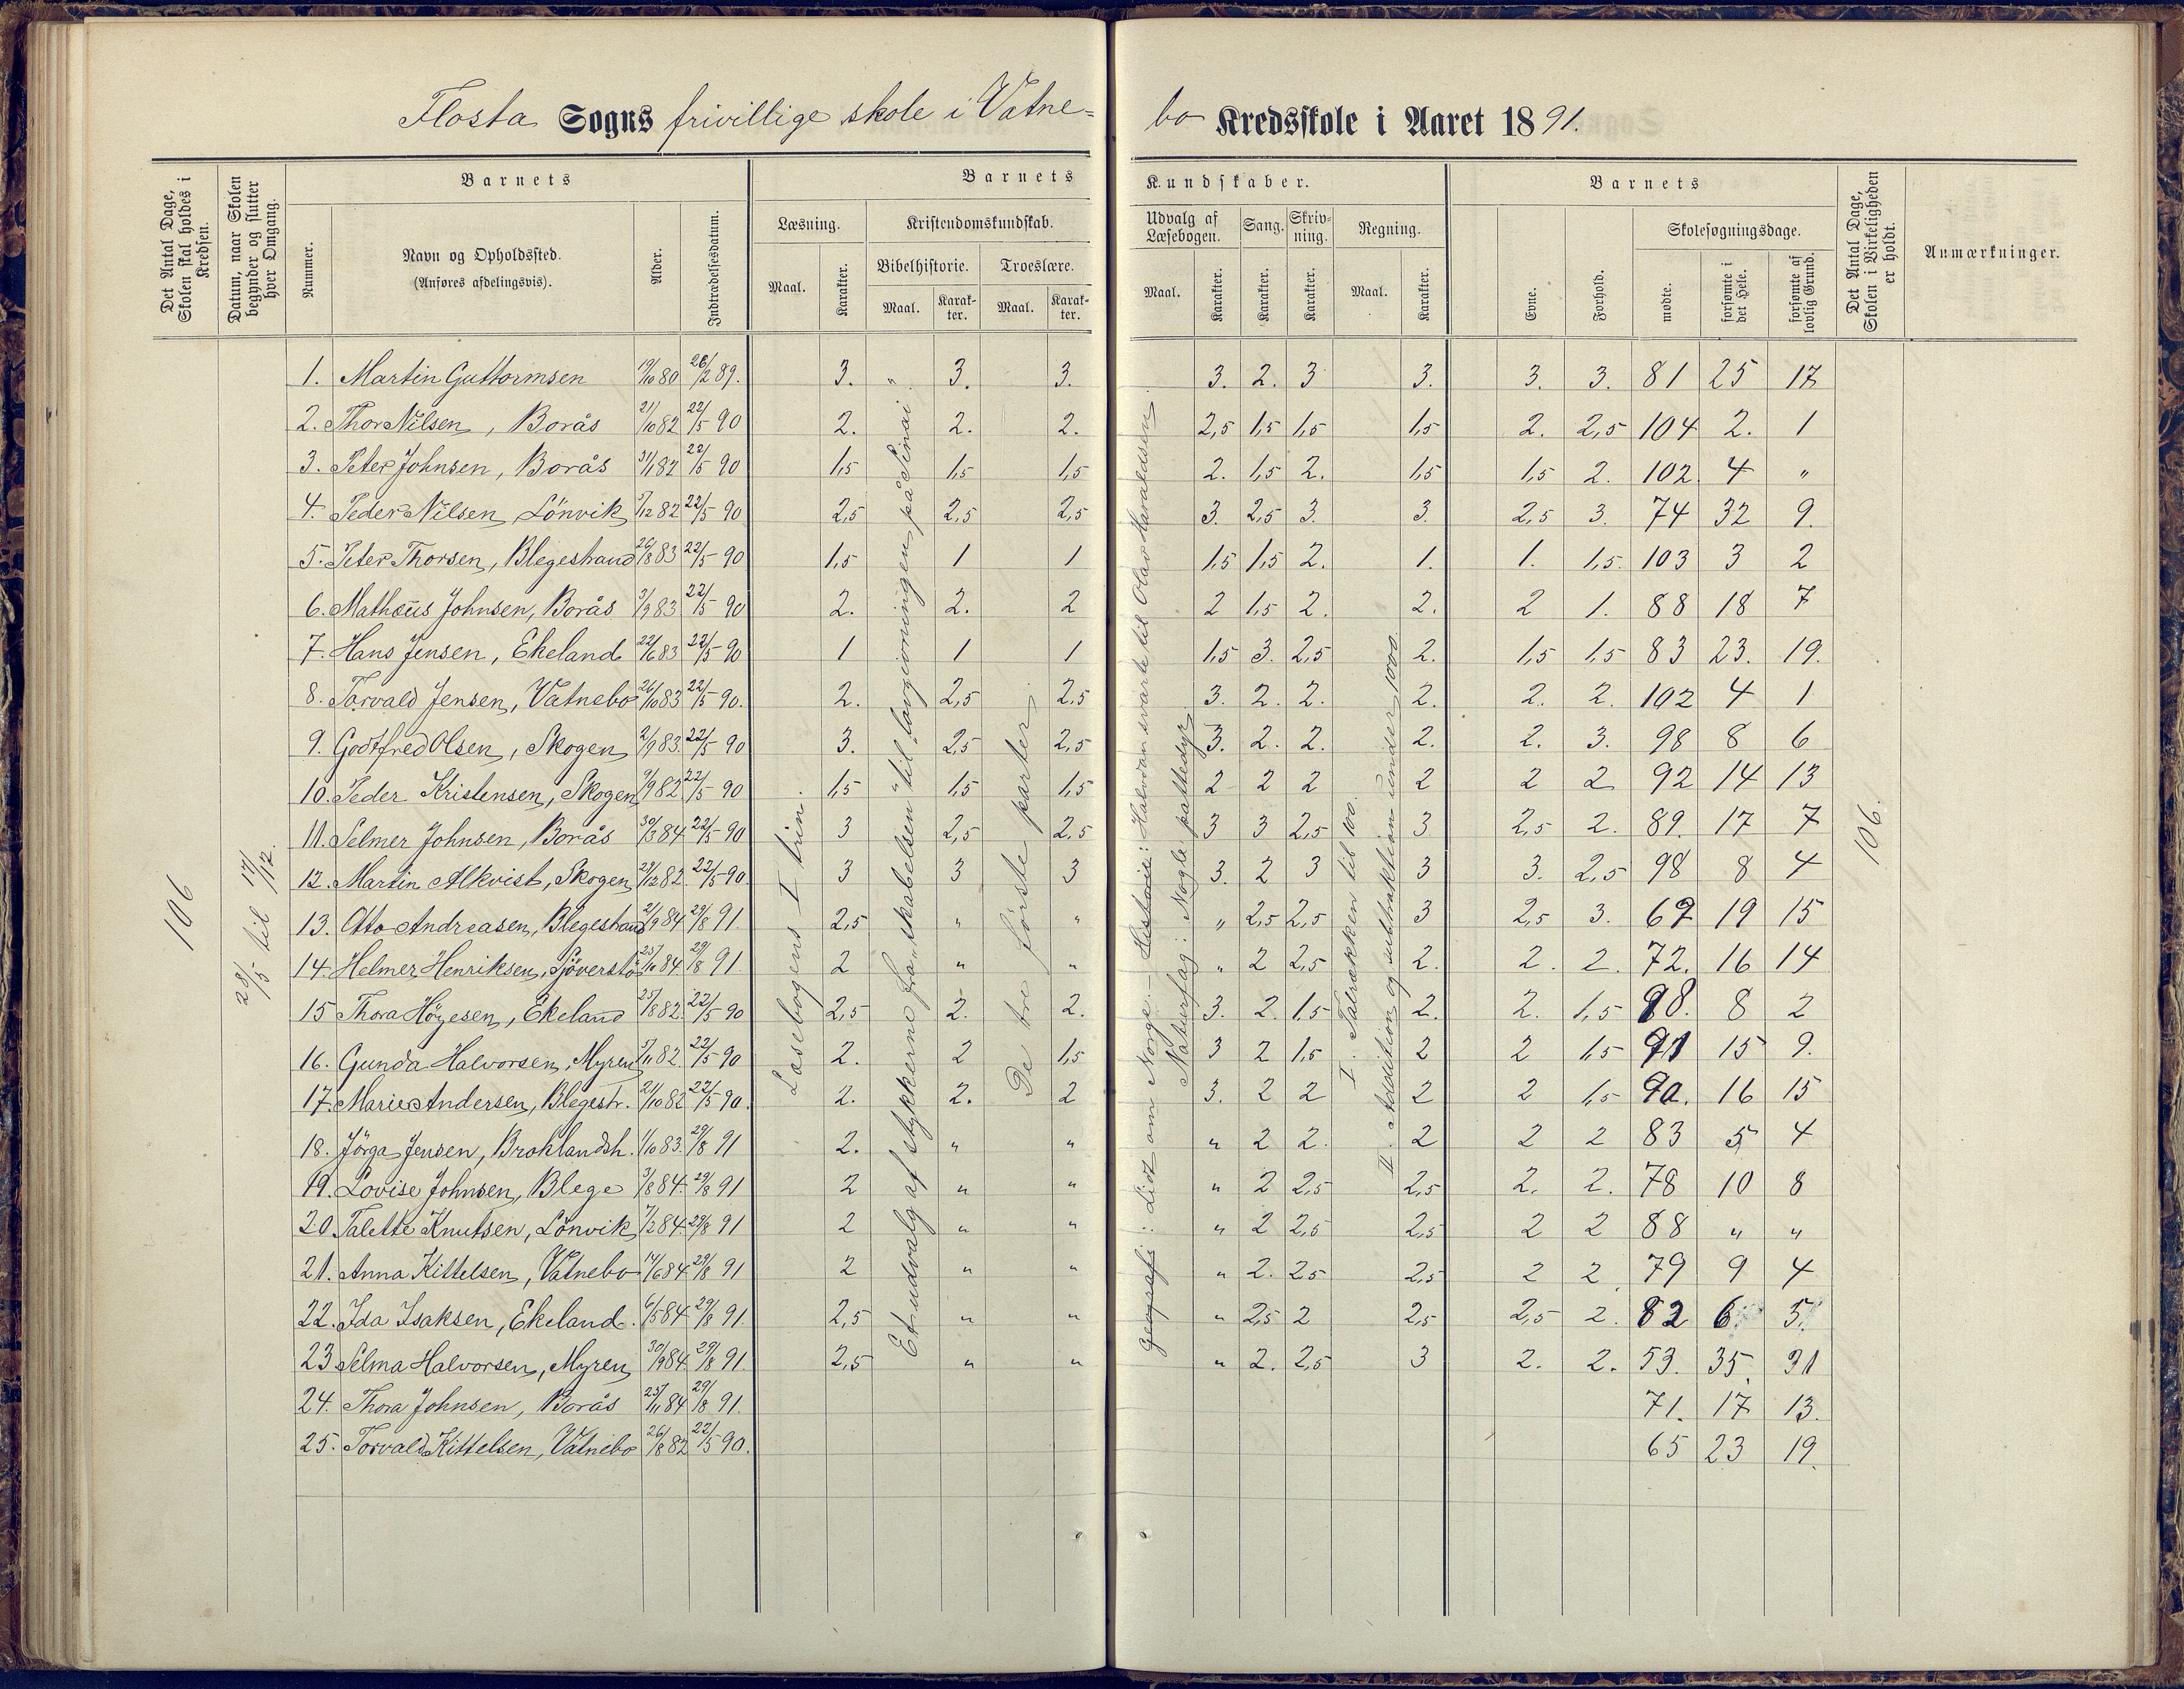 Flosta Sogns frivillige skole i Vatne-
bo Kredsskole i Aaret 1891.
Det Antal Dage, Skolen skal holdes i Kredsen.
Datum, naar Skolen begynder og slutter hver Omgang.
Barnets
Nummer.
Navn og Opholdssted. (Anføres afdelingsvis).
Alder.
Indtrædelsesdatum.
Barnets
Læsning.
Maal.
Karakter.
Kristendomskundskab.
Bibelhistorie.
Maal.
Karakter.
Troeslære.
Maal.
Karakter.
Kundskaber.
Udvalg af Læsebogen.
Maal.
Karakter.
Sang.
Karakter.
Skrivning.
Karakter.
Regning.
Maal.
Karakter.
Barnets
Evne.
Forhold.
Skolesøgningsdage.
mødte.
forsømte i det Hele.
forsømte af lovlig Grund.
Det Antal Dage, Skolen i Virkeligheden er holdt.
Anmærkninger.
106
28/5 til 17/12.
Læsebogens I trin.
Et udvalg af stykkerne fra "skabelsen" til "lovgivningen på Sinai"
De tre første parter
geografi: Lidt om Norge. — Historie: Halvdan svarte til Olav Haraldsen.
Naturfag: Nogle pattedyr
I. Talrækken til 100.
II. Addition og subtraktion under 1000.
106.
1. Martin Guttormsen 19/10 80 26/2 89. 3. " 3. 3. 3. 2. 3 3. 3. 3. 81 25 17
2. Thor Nilsen, Borås 21/10 82 22/5 90 2. 2. 2. 2,5 1,5 1,5 1,5 2. 2,5 104 2. 1
3. Peter Johnsen, Borås 31/1 82 22/5 90 1,5 1,5 1,5 2. 1,5 2. 1,5 1,5 2. 102. 4 "
4. Peder Nilsen, Lönvik 7/12 82 22/5 90 2,5 2,5 2,5 3. 2,5 3. 3. 2,5 3. 74 32 9.
5. Peter Thorsen, Blegestrand 26/8 83 22/5 90 1,5 1 1 1,5 1,5 2. 1. 1. 1,5. 103 3 2
6. Mathæus Johnsen, Borås 3/9 83 22/5 90 2. 2. 2 2 1,5 2. 2. 2 1. 88 18 7
7. Hans Jensen, Ekeland 22/6 83 22/5 90 1 1 1 1,5 3. 2,5 2. 1,5 1,5 83 23. 19.
8. Torvald Jensen, Vatnebo 26/10 83 22/5 90. 2. 2,5 2,5 3. 2. 2. 2. 2. 2. 102 4 1
9. Godtfred Olsen, Skogen 2/9 83. 22/5 90 3. 2,5 2,5 3. 2. 2. 2. 2. 3. 98 8 6
10. Peder Kristensen, Skogen 9/9 82. 22/5 90 1,5 1,5 1,5 2 2 2 2 2 2 92 14 13
11. Selmer Johnsen, Borås 30/3 84 22/5 90 3 2,5 2,5 3 3 2,5 3 2,5 2. 89. 17 7
12. Martin Alkvist, Skogen 23/12 82. 22/5 90. 3 3 3 3. 2 3 3 3. 2,5 98 8 4
13. Otto Andreasen, Blegestrand 2/9 84 29/8 91. 2,5 " " " 2,5 2,5 3 2,5 3. 69 19 15
14. Helmer Henriksen, Sjöverstö 25/10 84 29/8 91. 2 " " " 2 2,5 2. 2. 2. 72. 16 14
15 Thora Höyesen, Ekeland 25/8 82. 22/5 90 2,5 2. 2. 3. 2. 1,5 2. 2. 1,5 98. 8 2
16. Gunda Halvorsen, Myren 7/11 82. 22/5 90 2. 2 1,5 3 2 1,5 2 2 1,5 91 15 9.
17. Marie Andersen, Blegestr. 21/10 82 22/5 90. 2. 2. 2 3. 2 2 2 2 1,5 90. 16 15
18. Jörga Jensen, Broklandsh. 1/10 83. 29/8 91 2. " " " 2 2. 2 2 2 83 5 4
19. Lovise Johnsen, Blege 3/8 84. 29/8 91 2 " " " 2 2,5 2,5 2. 2. 78 10 8
20. Talette Knutsen, Lönvik 7/2 84. 29/8 91 2 " " " 2 2,5 2,5 2 2 88 " "
21. Anna Kittelsen, Vatnebo 14/6 84 29/8 91 2 " " " 2. 2,5 2,5 2 2 79 9 4
22. Ida Isaksen, Ekeland. 6/5 84. 29/8 91. 2,5 " " " 2,5 2 2,5 2,5 2. 82 6 5
23 Selma Halvorsen, Myren 30/9 84. 29/8 91. 2,5 " " " 2. 2,5 3 2. 2. 53. 35. 31
24. Thora Johnsen, Borås 25/11 84 29/8 91. 71. 17 13.
25. Torvald Kittelsen, Vatnebo 26/8 82 22/5 90. 65 23 19.